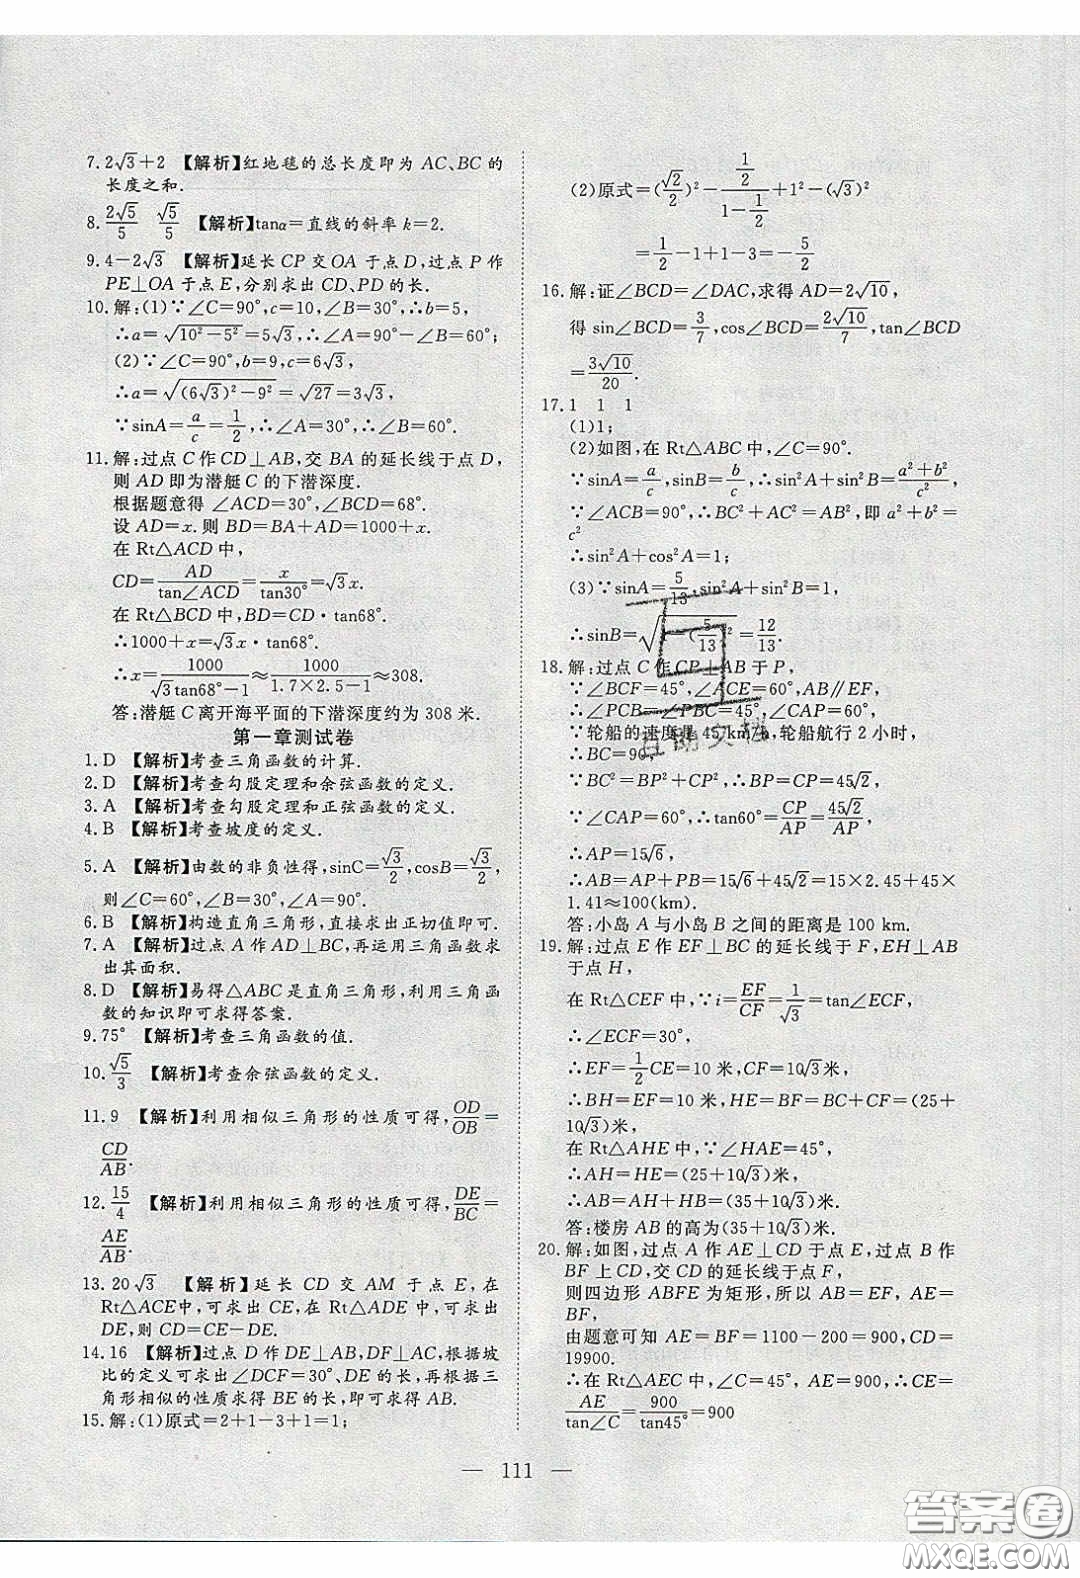 7. 2√3+2 【解析】红地毯的总长度即为 AC、BC 的
长度之和.
8. 2√5/5 √5/5 【解析】tanα=直线的斜率 k=2.
9. 4-2√3 【解析】延长 CP 交 OA 于点 D,过点 P 作
PE⊥OA 于点 E,分别求出 CD、PD 的长.
10. 解:(1)∵∠C=90°,c=10,∠B=30°,∴b=5,
∴a=√(10²-5²)=5√3,∴∠A=90°-∠B=60°.
(2)∵∠C=90°,b=9,c=6√3,
∴a=√((6√3)²-9²)=√27=3√3,
∵sinA=a/c=1/2,∴∠A=30°,∴∠B=60°.
11. 解:过点 C 作 CD⊥AB,交 BA 的延长线于点 D,
则 AD 即为潜艇 C 的下潜深度.
根据题意得 ∠ACD=30°,∠BCD=68°.
设 AD=x.则 BD=BA+AD=1000+x.
在 Rt△ACD 中,
CD=AD/tan∠ACD=x/tan30°=√3x.
在 Rt△BCD 中,BD=CD·tan68°.
∴1000+x=√3x·tan68°.
∴x=1000/(√3tan68°-1)≈1000/(1.7×2.5-1)≈308.
答:潜艇 C 离开海平面的下潜深度约为 308 米.
第一章测试卷
1. D 【解析】考查三角函数的计算.
2. D 【解析】考查勾股定理和余弦函数的定义.
3. A 【解析】考查勾股定理和正弦函数的定义.
4. B 【解析】考查坡度的定义.
5. A 【解析】由数的非负性得,sinC=√3/2,cosB=√3/2,
则∠C=60°,∠B=30°,∴∠A=90°.
6. B 【解析】构造直角三角形,直接求出正切值即可.
7. A 【解析】过点 A 作 AD⊥BC,再运用三角函数求
出其面积.
8. D 【解析】易得△ABC 是直角三角形,利用三角函
数的知识即可求得答案.
9. 75° 【解析】考查三角函数的值.
10. √5/3 【解析】考查余弦函数的定义.
11. 9 【解析】利用相似三角形的性质可得,OD/OB=
CD/AB.
12. 15/4 【解析】利用相似三角形的性质可得,DE/BC=
AE/AB.
13. 20√3 【解析】延长 CD 交 AM 于点 E,在
Rt△ACE中,可求出 CE,在 Rt△ADE 中,可求出
DE,则 CD=CE-DE.
14. 16 【解析】过点 D 作 DE⊥AB,DF⊥AC,根据坡
比的定义可求出∠DCF=30°、DE的长,再根据三
角形相似的性质求得 BE 的长,即可求得 AB.
15. 解:(1)原式=2+1-3+1=1;
(2)原式=(√2/2)²-(1/2)/(1-1/2)+1²-(√3)²
=1/2-1+1-3=-5/2
16. 解:证∠BCD=∠DAC,求得 AD=2√10,
得 sin∠BCD=3/7,cos∠BCD=2√10/7,tan∠BCD
=3√10/20.
17. 1 1 1
(1)1;
(2)如图,在 Rt△ABC 中,∠C=90°.
∵sinA=a/c,sinB=b/c,∴sinA+sinB=(a²+b²)/c²,
∵∠ACB=90°,∴BC²+AC²=AB²,即 a²+b²=
c²
∴sin²A+cos²A=1;
(3)∵sinA=5/13,sin²A+sin²B=1,
∴sinB=√(1-(5/13)²)=12/13.
18. 解:过点 C 作 CP⊥AB 于 P,
∵∠BCF=45°,∠ACE=60°,AB∥EF,
∴∠PCB=∠PBC=45°,∠CAP=60°,
∵轮船的速度是 45 km/h,轮船航行 2 小时,
∴BC=90,
∵BC²=BP²+CP²,∴BP=CP=45√2,
∵∠CAP=60°,∴tan60°=CP/AP=45√2/AP,
∴AP=15√6,
∴AB=AP+PB=15√6+45√2=15×2.45+45×
1.41≈100(km).
答:小岛 A 与小岛 B 之间的距离是 100 km.
19. 解:过点 E 作 EF⊥BC 的延长线于 F,EH⊥AB
于点 H,
在 Rt△CEF 中,∵i=EF/CF=1/√3=tan∠ECF,
∴∠ECF=30°,
∴EF=1/2CE=10 米,CF=10√3米,
∴BH=EF=10 米,HE=BF=BC+CF=(25+
10√3)米,
在 Rt△AHE 中,∵∠HAE=45°,
∴AH=HE=(25+10√3)米,
∴AB=AH+HB=(35+10√3)米.
答:楼房 AB 的高为(35+10√3)米.
20. 解:如图,过点 A 作 AE⊥CD 于点 E,过点 B 作
BF 上 CD,交 CD 的延长线于点 F,
则四边形 ABFE 为矩形,所以 AB=EF,AE=
BF,
由题意可知 AE=BF=1100-200=900,CD=
19900.
∴在 Rt△AEC 中,∠C=45°,AE=900,∴CE=
AE/tan∠C=900/tan45°=900
— 111 —
答案卷
MXQE.COM